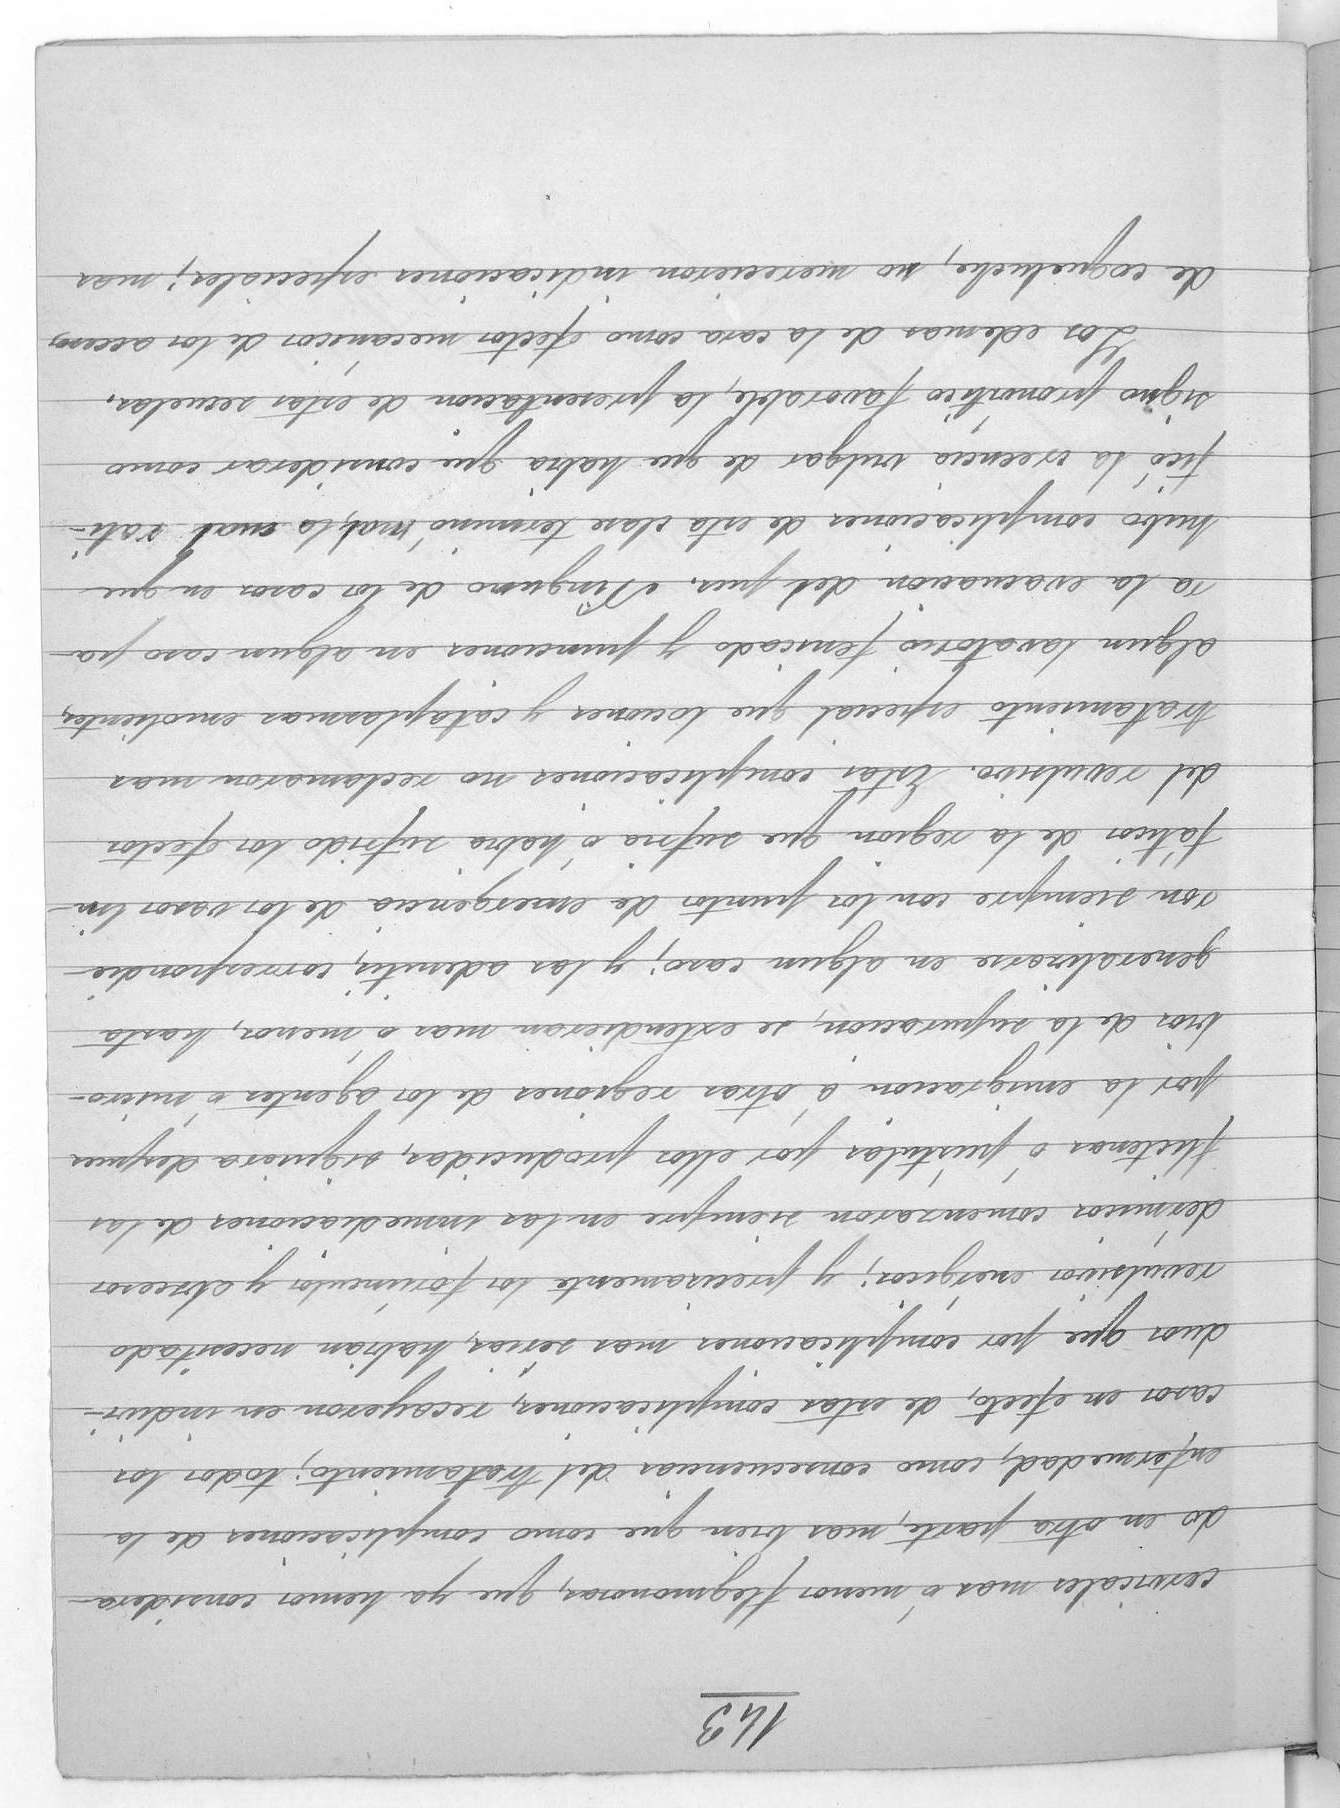 143
cervicales mas ó menos flegmonosas, que ya hemos considera-
do en otra parte, mas bien que como complicaciones de la
enfermedad, como consecuencias del tratamiento; todos los
casos en efecto, de estas complicaciones, recayeron en indivi-
duos que por complicaciones mas serias, habian necesitado
revulsivos energicos; y precisamente los forúnculos y abscesos
dérmicos comenzaron siempre en las inmediaciones de las
flictenas ó pústulas por ellos producidas, siquiera despues
por la emigracion á otras regiones de los agentes ó micro-
bios de la supuracion, se extendieran mas ó menos, hasta
generalizarse en algun caso; y las adenitis, correspondie-
ron siempre con los puntos de emergencia de los vasos lin-
fáticos de la region que sufria ó habia sufrido los efectos
del revulsivo. Estas complicaciones no reclamaron mas
tratamiento especial que lociones y cataplasmas emolientes,
algun lavatorio fenicado y punciones en algun caso pa-
ra la evacuacion del pus. Ninguno de los casos en que
hubo complicaciones de esta clase terminó mal, lo cual rati-
ficó la creencia vulgar de que habia que considerar como
signo pronóstico favorable, la presentacion de estas secuelas.
Los edemas de la cara como efectos mecánicos de los accesos
de coqueluche, no merecieron indicaciones especiales; mas